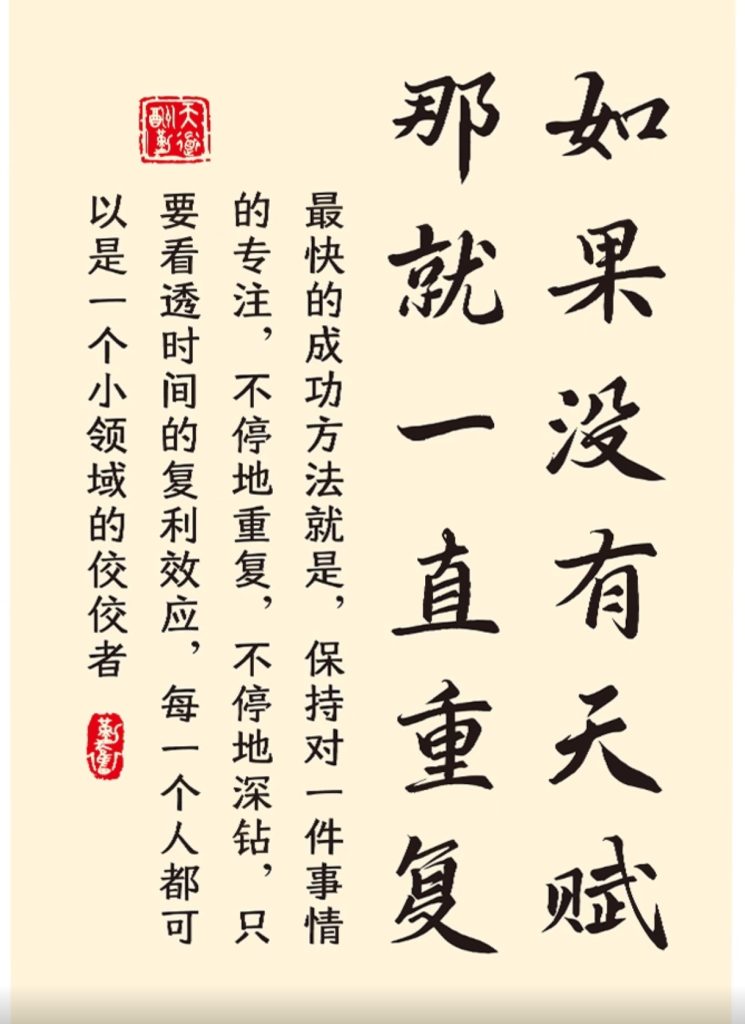 如果没有天赋
那就一直重复
最快的成功方法就是，保持对一件事情
的专注，不停地重复，不停地深钻，只
要看透时间的复利效应，每一个人都可
以是一个小领域的佼佼者
天道
酬勤